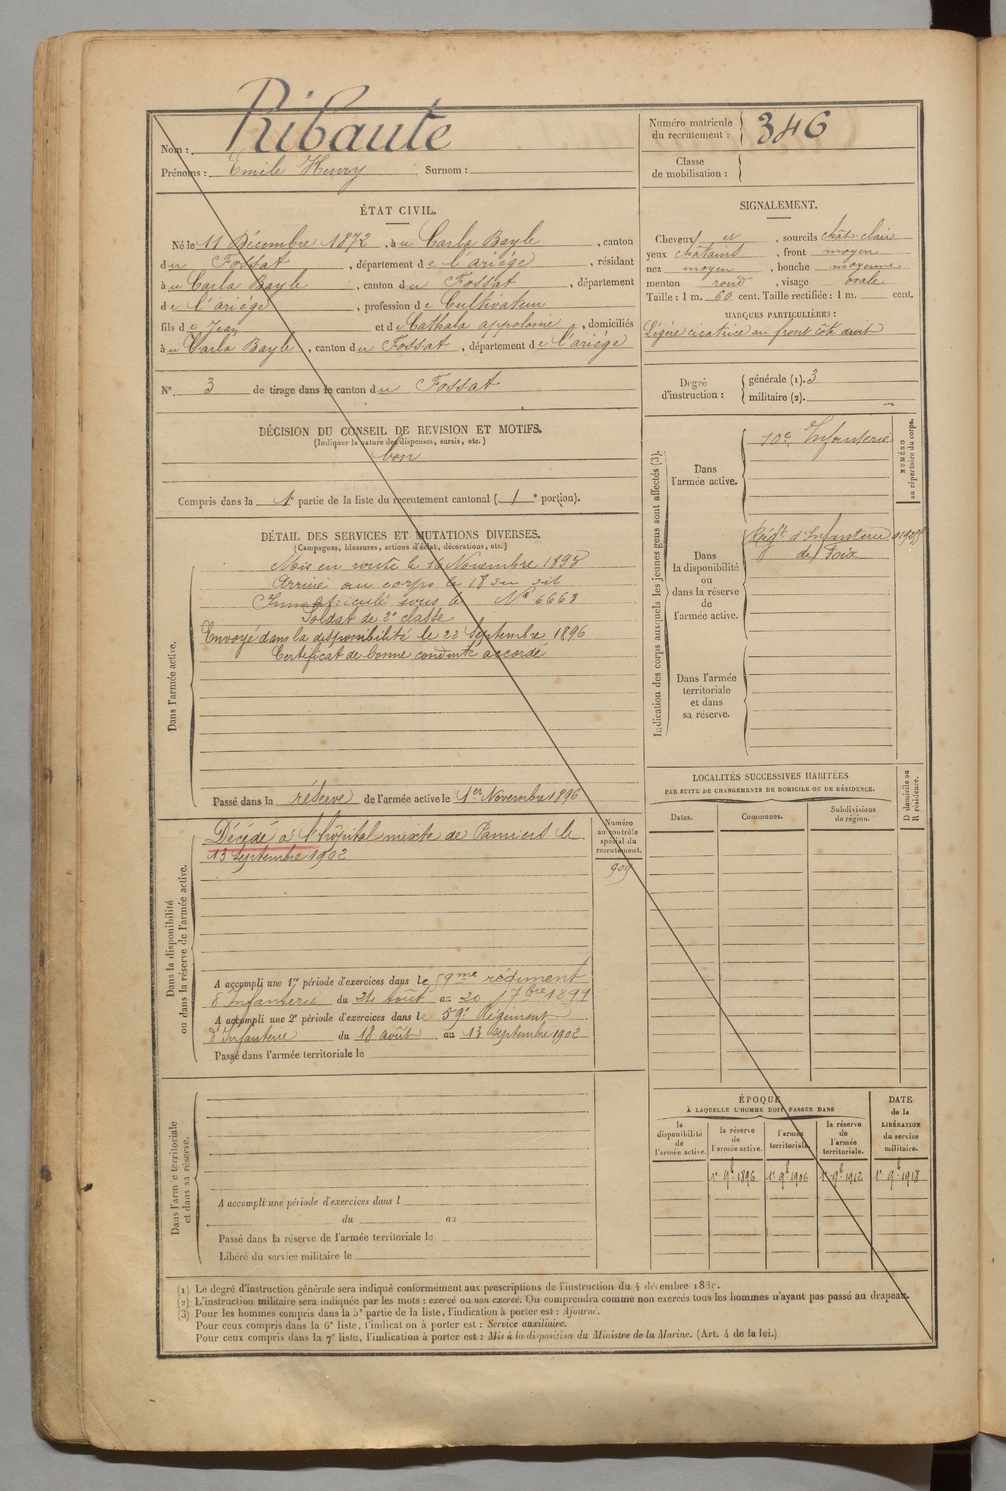 Nom : Ribaute
Prénoms : Emile Henry Surnom :
Numéro matricule du recrutement : 346
Classe de mobilisation :
ÉTAT CIVIL.
Né le 11 Décembre 1872, à u Carla Bayle, canton
du Fossat, département de l'ariége, résidant
à u Carla Bayle, canton du Fossat, département
de l'ariége, profession de Cultivateur
fils de Jean et de Cathala appolonie, domiciliés
à u Carla Bayle, canton du Fossat, département de l'ariége
N° 3 de tirage dans le canton du Fossat
DÉCISION DU CONSEIL DE REVISION ET MOTIFS.
(Indiquer la nature des dispenses, sursis, etc.)
bon
Compris dans la 1e partie de la liste du recrutement cantonal (1e portion).
SIGNALEMENT.
Cheveux et, sourcils chât-clair
yeux châtains, front moyen
nez moyen, bouche moyenne
menton rond, visage ovale
Taille : 1 m. 60 cent. Taille rectifiée : 1 m. cent.
MARQUES PARTICULIÈRES :
Légère cicatrice au front côté droit
Degré d'instruction : générale (1). 3
militaire (2).
DÉTAIL DES SERVICES ET MUTATIONS DIVERSES.
(Campagnes, blessures, actions d'éclat, décorations, etc.)
Dans l'armée active.
Mis en route le 16 Novembre 1893
Arrivé au corps le 18 du dit
Immatriculé sous le N° 6663
Soldat de 2e classe
Envoyé dans la disponibilité le 22 Septembre 1896
Certificat de bonne conduite accordé
Passé dans la réserve de l'armée active le 1er Novembre 1896
Indication des corps auxquels les jeunes gons sont affectés (3).
NUMÉRO
au répertoire du corps.
Dans
l'armée active.
Infanterie
Dans
la disponibilité
ou
dans la réserve
de
l'armée active.
Régt d'Infanterie
de Foix
Dans l'armée
territoriale
et dans
sa réserve.
LOCALITÉS SUCCESSIVES HABITÉES
PAR SUITE DE CHANGEMENTS DE DOMICILE OU DE RÉSIDENCE.
Dates.
Communes.
Subdivisions
de région.
D domicile ou
R résidence.
Dans la disponibilité
ou dans la réserve de l'armée active.
Numéro
au contrôle
spécial du
recrutement.
909
Décédé à l'hôpital mixte de Pamiers le
13 septembre 1902
A accompli une 1re période d'exercices dans le 59me régiment
d'Infanterie du 24 Août au 20 7bre 1899
A accompli une 2e période d'exercices dans le 59e Régiment
d'Infanterie du 18 août au 13 septembre 1902
Passé dans l'armée territoriale le
Dans l'armée territoriale
et dans sa réserve.
A accompli une période d'exercices dans l
du au
Passé dans la réserve de l'armée territoriale le
Libéré du service militaire le
ÉPOQUE
À LAQUELLE L'HOMME DOIT PASSER DANS
la
disponibilité
de
l'armée active.
la réserve
de
l'armée active.
l'armée
territoriale.
la réserve
de
l'armée
territoriale.
DATE
de la
LIBÉRATION
du service
militaire.
1er 9b 1896 1er 9b 1906 1er 9b 1912 1er 9b 1918
(1) Le degré d'instruction générale sera indiqué conformément aux prescriptions de l'instruction du 4 décembre 1889.
(2) L'instruction militaire sera indiquée par les mots : exercé ou non exercé. On comprendra comme non exercés tous les hommes n'ayant pas passé au drapeau.
(3) Pour les hommes compris dans la 5e partie de la liste, l'indication à porter est : Ajourné.
Pour ceux compris dans la 6e liste, l'indication à porter est : Service auxiliaire.
Pour ceux compris dans la 7e liste, l'indication à porter est : Mis à la disposition du Ministre de la Marine. (Art. 4 de la loi.)